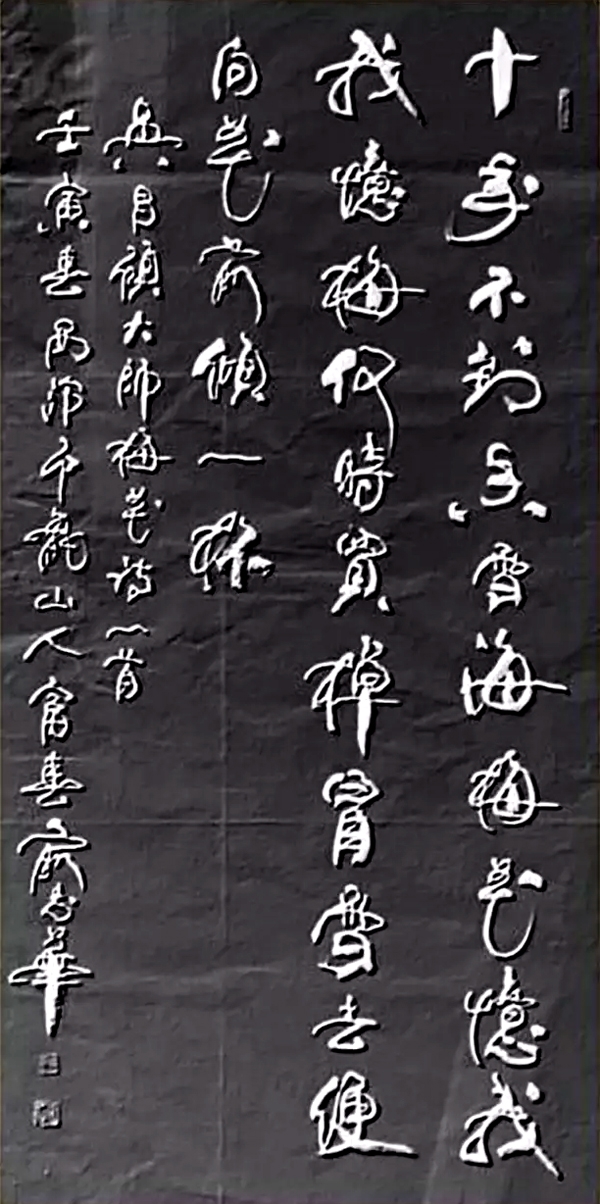 十年不到香雪海梅花憶我
我憶梅何時買棹冒雪去便
向花前傾一杯
吳昌碩大師梅花詩一首
壬寅春浙中鹿山人富春華